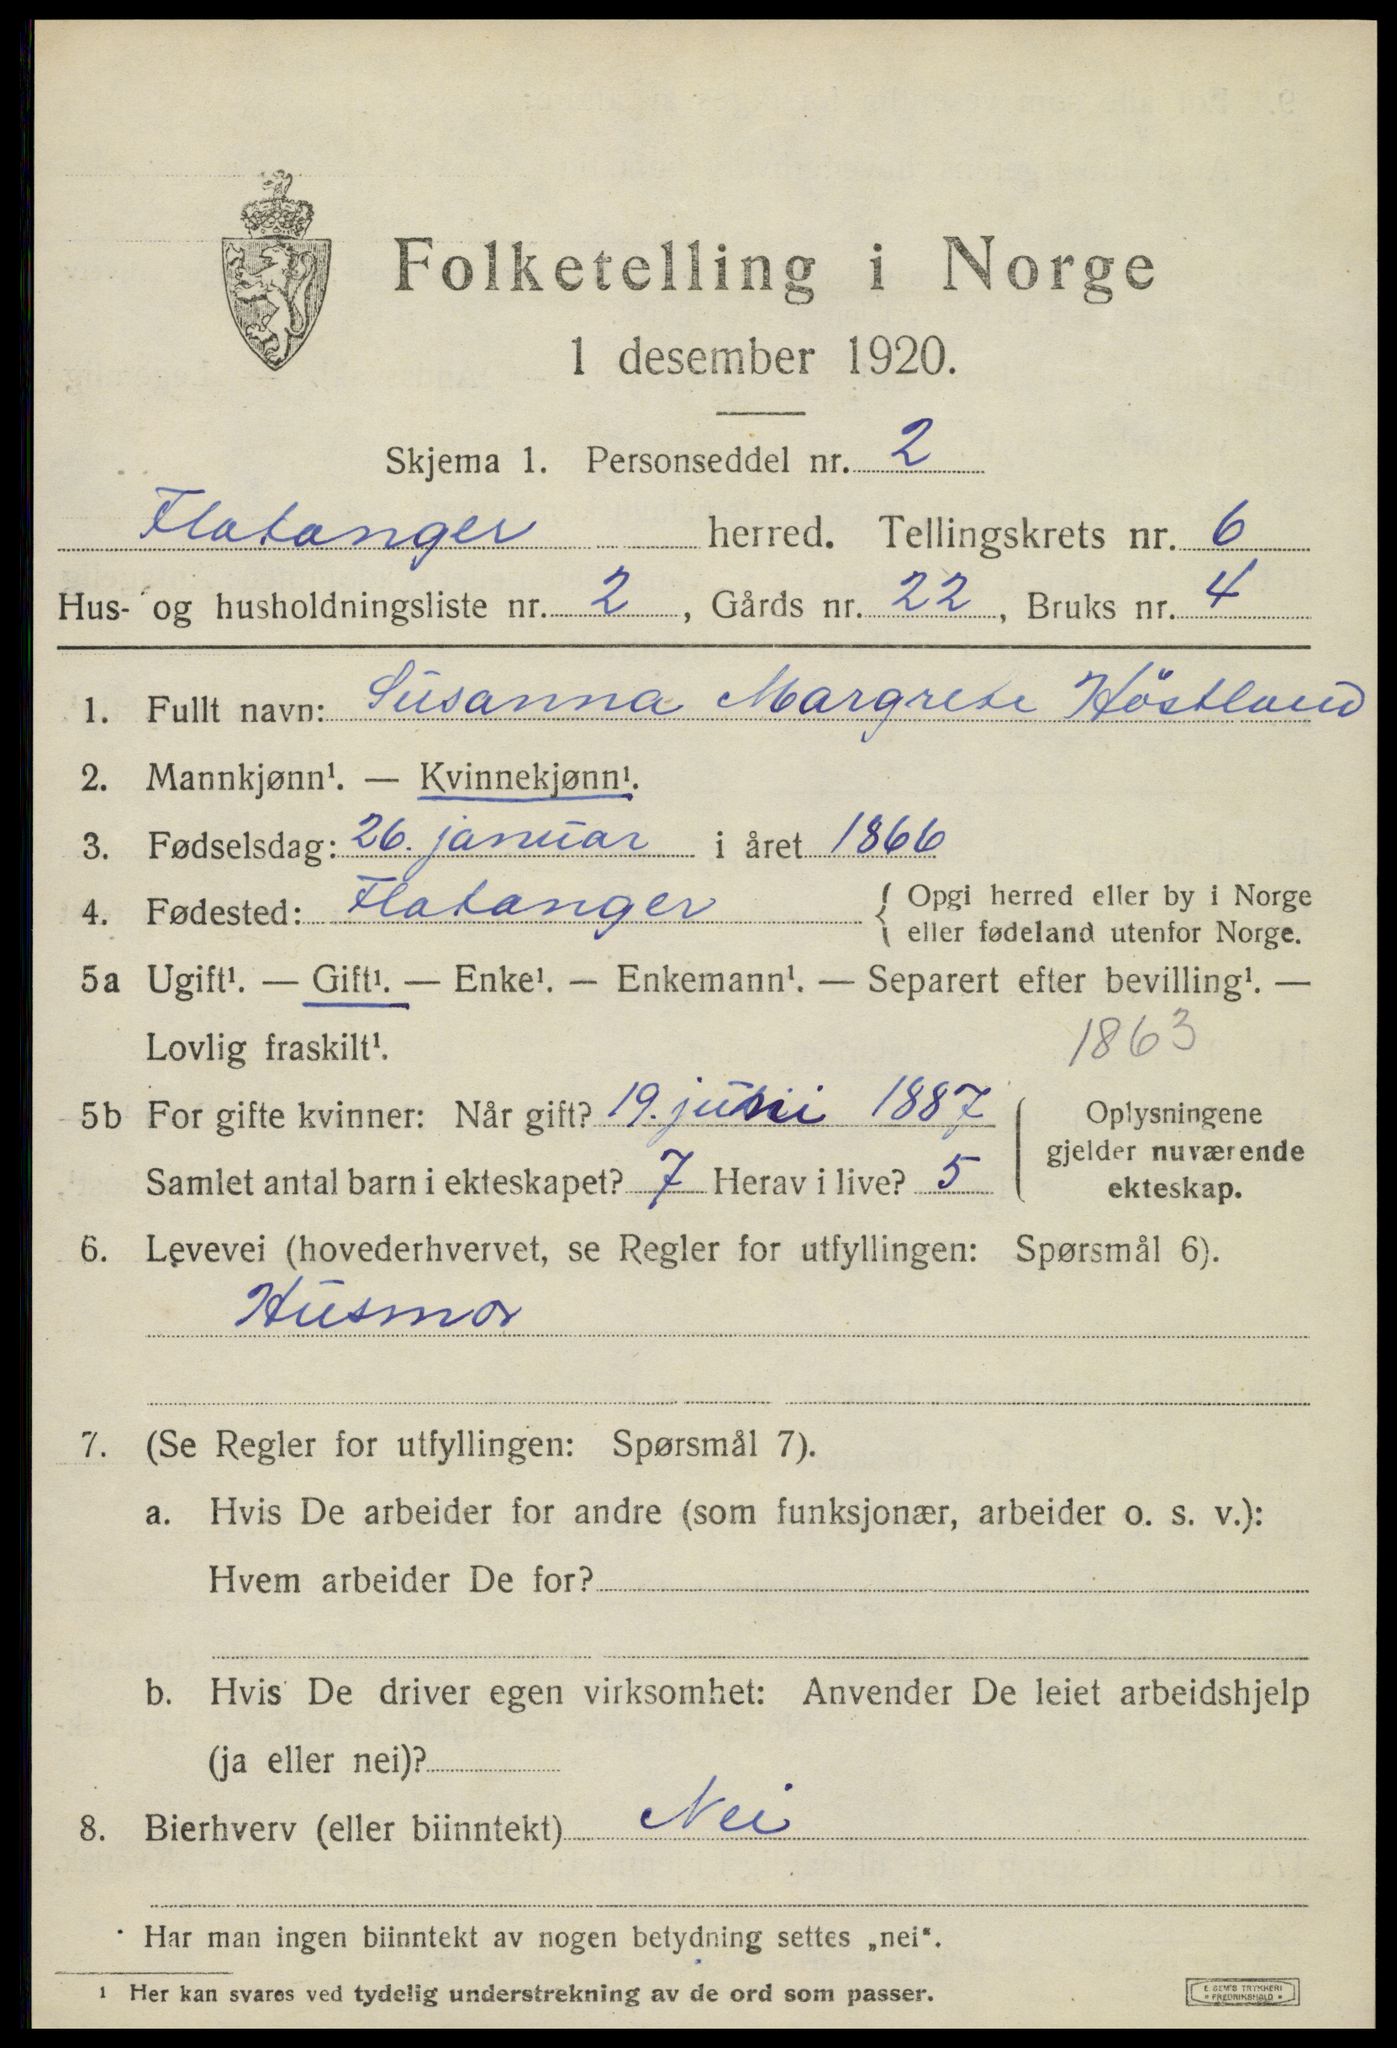 Folketelling i Norge
1 desember 1920.
Skjema 1. Personseddel nr. 2
Flatanger herred. Tellingskrets nr. 6
Hus- og husholdningsliste nr. 2, Gårds nr. 22, Bruks nr. 4
1. Fullt navn: Susanna Margrete Höstland
2. Mannkjønn¹. — Kvinnekjønn¹.
3. Fødselsdag: 26. januar i året 1866
4. Fødested: Flatanger { Opgi herred eller by i Norge
eller fødeland utenfor Norge.
5a Ugift¹. — Gift¹. — Enke¹. — Enkemann¹. — Separert efter bevilling¹. —
Lovlig fraskilt¹. 1863
5b For gifte kvinner: Når gift? 19. juni 1887 Oplysningene
gjelder nuværende
Samlet antal barn i ekteskapet? 7 Herav i live? 5 ekteskap.
6. Levevei (hovederhvervet, se Regler for utfyllingen: Spørsmål 6).
Husmor
7. (Se Regler for utfyllingen: Spørsmål 7).
a. Hvis De arbeider for andre (som funksjonær, arbeider o. s. v.):
Hvem arbeider De for?
b. Hvis De driver egen virksomhet: Anvender De leiet arbeidshjelp
(ja eller nei)?
8. Bierhverv (eller biinntekt) Nei
Har man ingen biinntekt av nogen betydning settes „nei“.
¹ Her kan svares ved tydelig understrekning av de ord som passer.
E. SEM'S TRYKKERI
FREDRIKSHALD